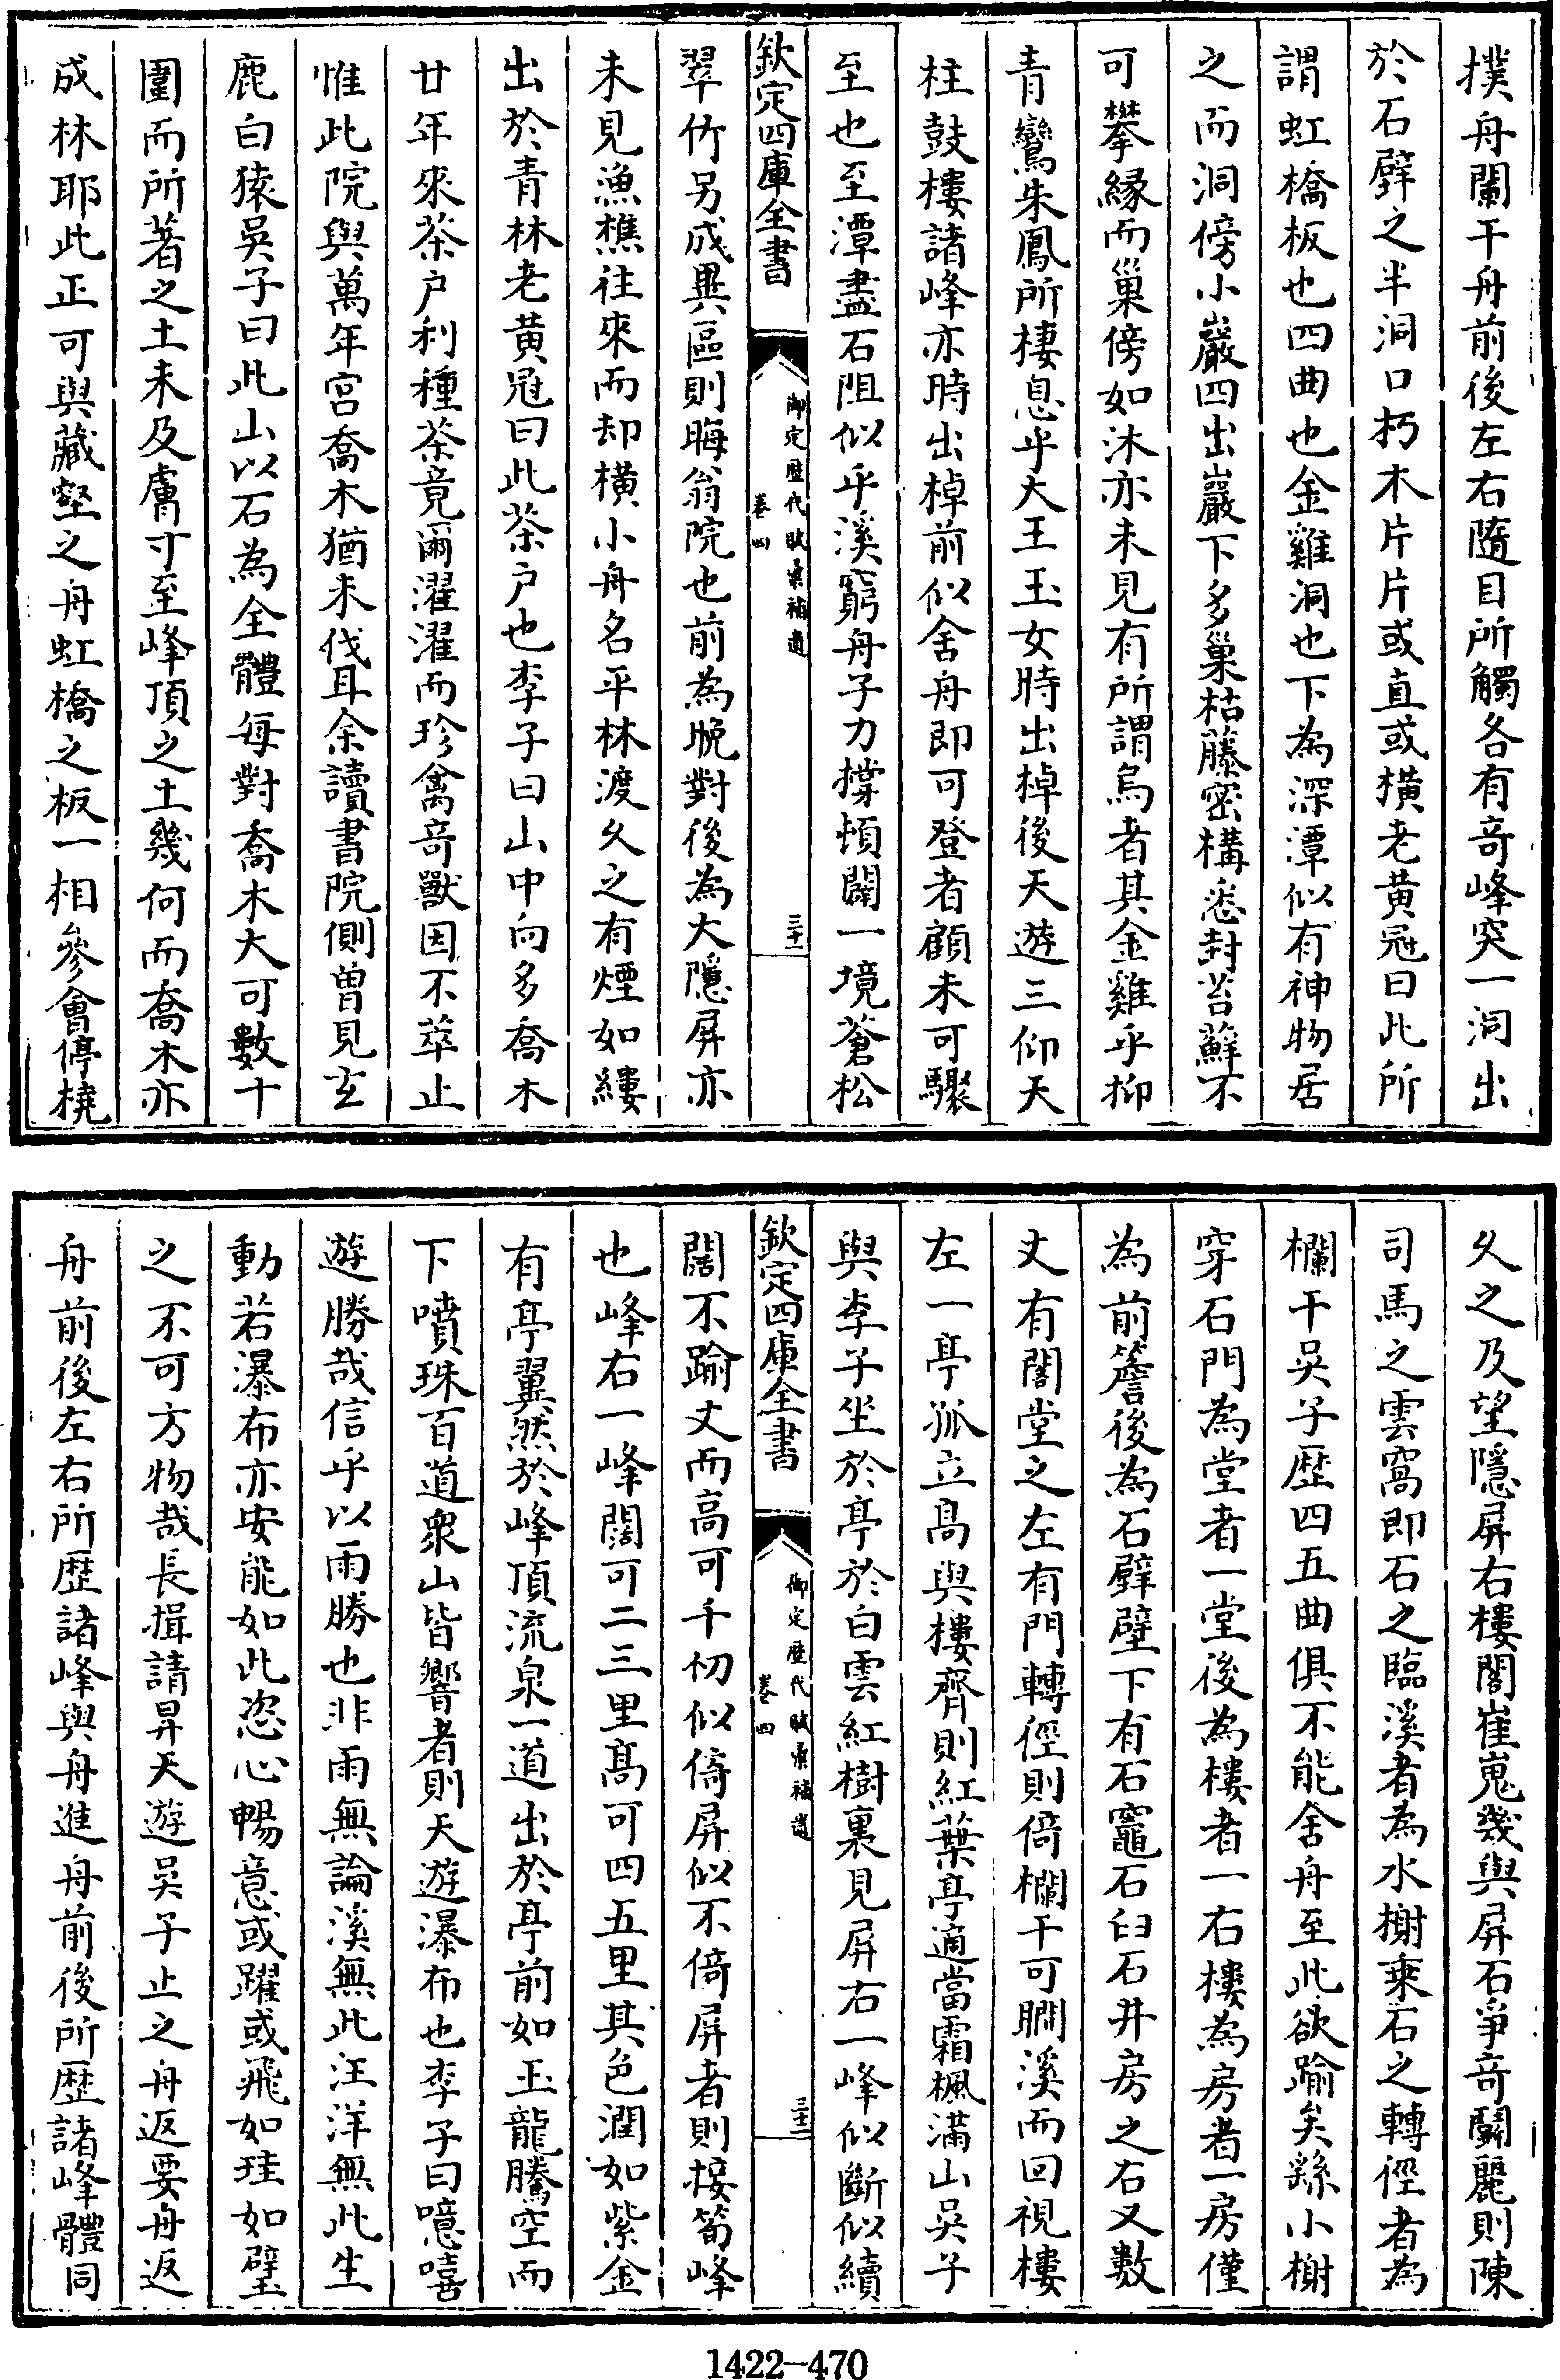 撲舟闌干舟前後左右隨目所觸各有奇峰突一洞出
於石壁之半洞口朽木片片或直或橫老黄冠曰此所
謂虹橋板也四曲也金雞洞也下為深潭似有神物居
之而洞傍小巖四出巖下多巢枯藤密構悉封苔蘚不
可攀緣而巢傍如沐亦未見有所謂烏者其金雞乎抑
青鸞朱鳳所棲息乎大王玉女時出棹後天遊三仰天
柱鼓樓諸峰亦時出棹前似舍舟即可登者顧未可驟
至也至潭盡石阻似乎溪窮舟子力撑頓闢一境蒼松
欽定四庫全書
御定歴代賦彙補遺
卷四
三十一
翠竹另成異區則晦翁院也前為晚對後為大隱屏亦
未見漁樵往來而却橫小舟名平林渡久之有煙如縷
出於青林老黄冠曰此茶户也李子曰山中向多喬木
廿年來茶户利種茶竟爾濯濯而珍禽奇獸因不萃止
惟此院與萬年宫喬木猶未伐耳余讀書院側曽見玄
鹿白猿吳子曰此山以石為全體每對喬木大可數十
圍而所著之土未及膚寸至峰頂之土幾何而喬木亦
成林耶此正可與藏壑之舟虹橋之板一相參會停橈
久之及望隱屏右樓閣崔嵬幾與屏石爭奇鬭麗則陳
司馬之雲窩即石之臨溪者為水榭乗石之轉徑者為
欄干吳子歴四五曲俱不能舍舟至此欲踰矣繇小榭
穿石門為堂者一堂後為樓者一右樓為房者一房僅
為前簷後為石壁壁下有石竈石臼石井房之右又數
丈有閣堂之左有門轉徑則倚欄干可瞷溪而回視樓
左一亭孤立高與樓齊則紅葉亭適當霜楓滿山吳子
與李子坐於亭於白雲紅樹裏見屏右一峰似斷似續
欽定四庫全書
御定歴代賦彙補遺
卷四
三十二
闊不踰丈而高可千仞似倚屏似不倚屏者則接筍峰
也峰右一峰闊可二三里高可四五里其色潤如紫金
有亭翼然於峰頂流泉一道出於亭前如玉龍騰空而
下噴珠百道衆山皆響者則天遊瀑布也李子曰噫嘻
遊勝哉信乎以雨勝也非雨無論溪無此汪洋無此生
動若瀑布亦安能如此恣心暢意或躍或飛如珪如璧
之不可方物哉長揖請昇天遊吳子止之舟返要舟返
舟前後左右所歴諸峰與舟進舟前後所歴諸峰體同
1422-470